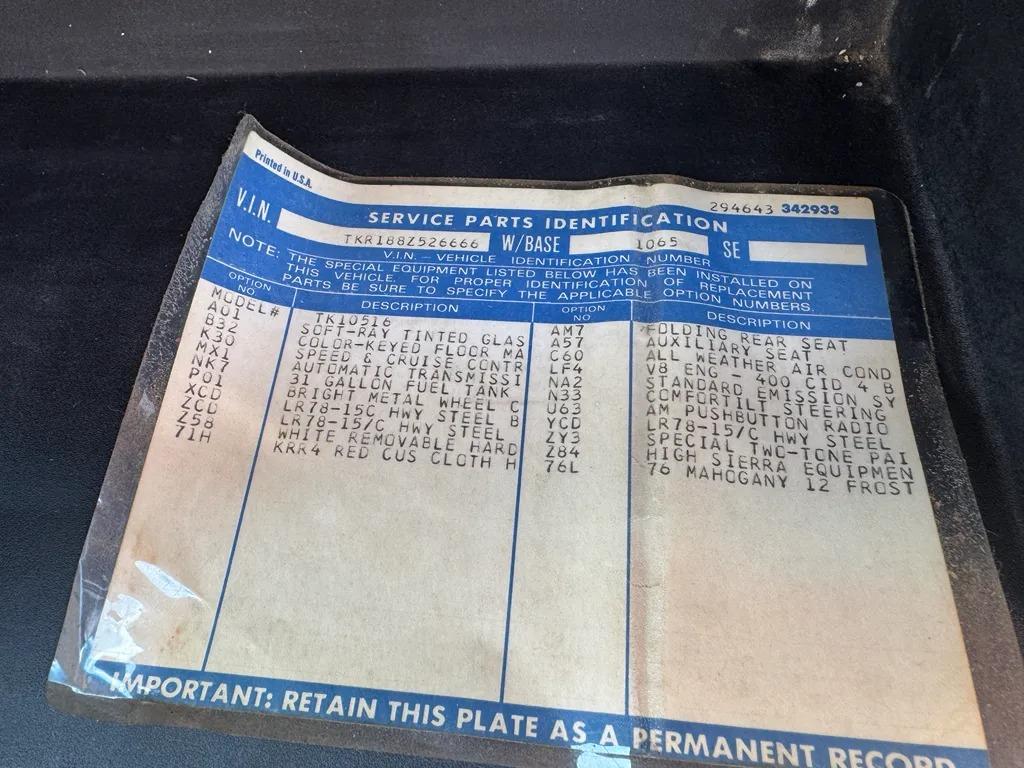 Printed in U.S.A.
294643 342933
SERVICE PARTS IDENTIFICATION
V.I.N. TKR188Z526666 W/BASE 1065 SE
V.I.N. – VEHICLE IDENTIFICATION NUMBER
NOTE: THE SPECIAL EQUIPMENT LISTED BELOW HAS BEEN INSTALLED ON
THIS VEHICLE. FOR PROPER IDENTIFICATION OF REPLACEMENT
PARTS BE SURE TO SPECIFY THE APPLICABLE OPTION NUMBERS.
OPTION NO. DESCRIPTION OPTION NO. DESCRIPTION
MODEL# TK10516 AM7 FOLDING REAR SEAT
A01 SOFT-RAY TINTED GLAS A57 AUXILIARY SEAT
B32 COLOR-KEYED FLOOR MA C60 ALL WEATHER AIR COND
K30 SPEED & CRUISE CONTR LF4 V8 ENG - 400 CID 4 B
MX1 AUTOMATIC TRANSMISSI NA2 STANDARD EMISSION SY
NK7 31 GALLON FUEL TANK N33 COMFORTILT STEERING
P01 BRIGHT METAL WHEEL C U63 AM PUSHBUTTON RADIO
XCD LR78-15C HWY STEEL B YCD LR78-15/C HWY STEEL
ZCD LR78-15/C HWY STEEL ZY3 SPECIAL TWO-TONE PAI
Z58 WHITE REMOVABLE HARD Z84 HIGH SIERRA EQUIPMEN
71H KRR4 RED CUS CLOTH H 76L 76 MAHOGANY 12 FROST
IMPORTANT: RETAIN THIS PLATE AS A PERMANENT RECORD